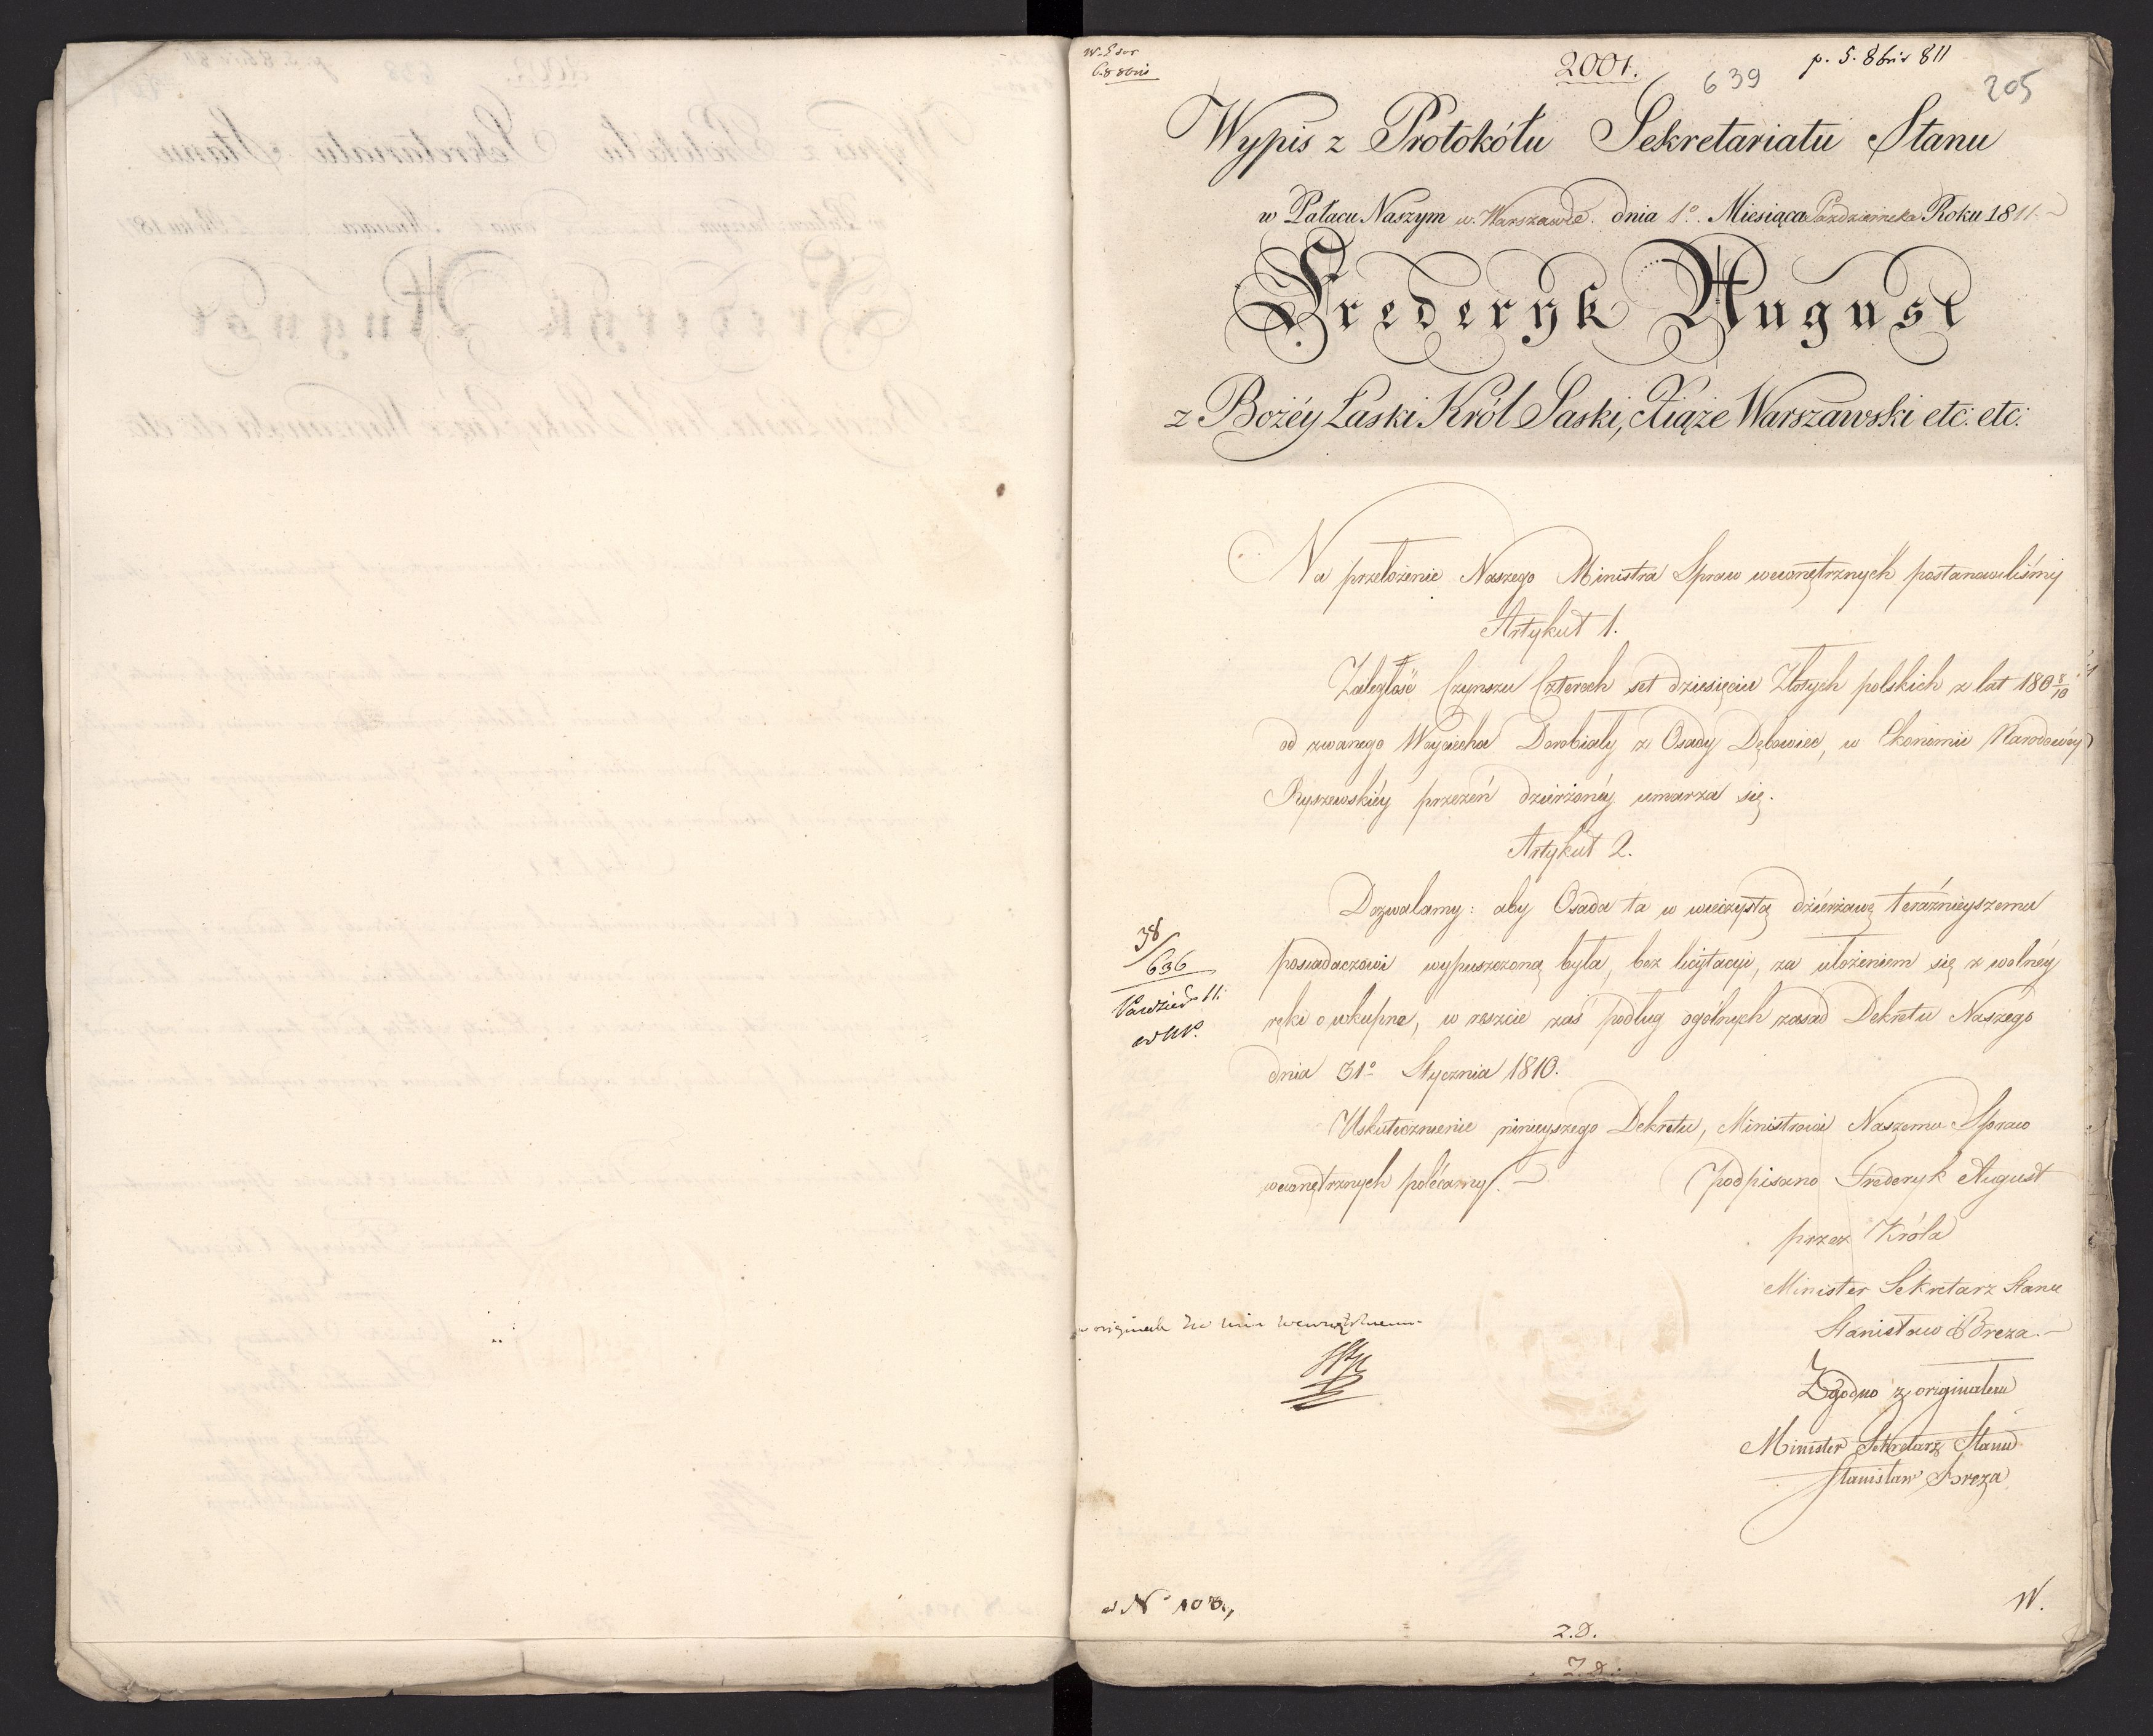 2001.
639
p. 5. 8bris 811
205
Wypis z Protokółu Sekretariatu Stanu
w Pałacu Naszym w Warszawie dnia 1º Miesiąca Października Roku 1811.
Frederyk August
z Bożéy Łaski Król Saski, Xiąże Warszawski etc: etc:
Na przełożenie Naszego Ministra Spraw wewnętrznych postanowiliśmy
Artykuł 1.
Zaległość Czynszu Czterech set dziesięciu Złotych polskich z lat 180 8/10
od zwanego Woyciecha Dorobiały z Osady Dębowiec, w Ekonomii Narodowéy
Ryszewskiéy przezeń dzierżonéy umarza się.
Artykuł 2.
Dozwalamy: aby Osada ta w wieczystą dzierżawę teraźnieyszemu
posiadaczowi wypuszczoną była, bez licytacyi, za ułożeniem się z wolnéy
ręki o wkupne, w reszcie zaś podług ogólnych zasad Dekretu Naszego
dnia 31º Stycznia 1810.
38/636
Uskutecznienie ninieyszego Dekretu, Ministrowi Naszemu Spraw
wewnętrznych polécamy.
Podpisano Frederyk August
przez Króla
Minister Sekretarz Stanu
Stanisław Breza.
Zgodno z originałem
Minister Sekretarz Stanu
Stanisław Breza
W.
2.D.